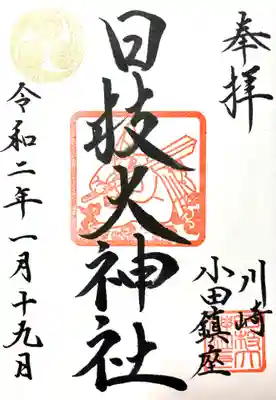 奉拝
川崎
小田鎮座
日枝大神社
令和二年一月十九日